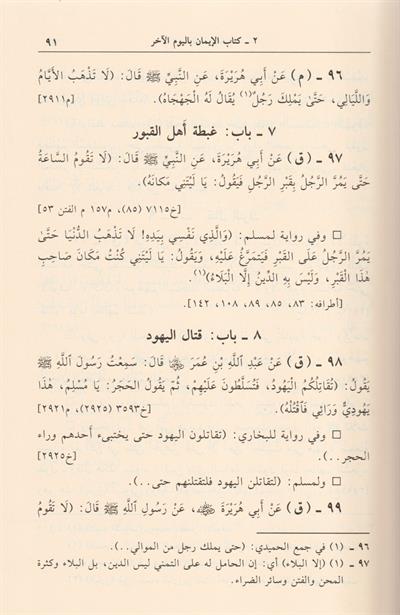 ٢ ـ كتاب الإيمان باليوم الآخر ٩١
٩٦ ـ (م) عَنْ أَبِي هُرَيْرَةَ، عَنِ النَّبِيِّ ﷺ قَالَ: (لَا تَذْهَبُ الأَيَّامُ
وَاللَّيَالِي، حَتَّى يَمْلِكَ رَجُلٌ(١) يُقَالُ لَهُ الْجَهْجَاهُ). [م٢٩١١]
٧ ـ باب: غبطة أهل القبور
٩٧ ـ (ق) عَنْ أَبِي هُرَيْرَةَ، عَنِ النَّبِيِّ ﷺ قَالَ: (لَا تَقُومُ السَّاعَةُ
حَتَّى يَمُرَّ الرَّجُلُ بِقَبْرِ الرَّجُلِ فَيَقُولُ: يَا لَيْتَنِي مَكَانَهُ).
[خ٧١١٥ (٨٥)، م١٥٧ م الفتن ٥٣]
□ وفي رواية لمسلم: (وَالَّذِي نَفْسِي بِيَدِهِ! لَا تَذْهَبُ الدُّنْيَا حَتَّىٰ
يَمُرَّ الرَّجُلُ عَلَى الْقَبْرِ فَيَتَمَرَّغُ عَلَيْهِ، وَيَقُولُ: يَا لَيْتَنِي كُنْتُ مَكَانَ صَاحِبِ
هٰذَا الْقَبْرِ، وَلَيْسَ بِهِ الدِّينُ إِلَّا الْبَلَاءُ)(١).
[أطرافه: ٨٣، ٨٥، ٨٩، ١٠٨، ١٤٢].
٨ ـ باب: قتال اليهود
٩٨ ـ (ق) عَنْ عَبْدِ اللَّهِ بْنِ عُمَرَ ﷺ قَالَ: سَمِعْتُ رَسُولَ اللَّهِ ﷺ
يَقُولُ: (تُقَاتِلُكُمُ الْيَهُودُ، فَتُسَلَّطُونَ عَلَيْهِمْ، ثُمَّ يَقُولُ الْحَجَرُ: يَا مُسْلِمُ، هٰذَا
يَهُودِيٌّ وَرَائِي فَاقْتُلْهُ). [خ٣٥٩٣ (٢٩٢٥)، م٢٩٢١]
□ وفي رواية للبخاري: (تقاتلون اليهود حتى يختبىء أحدهم وراء
الحجر..). [خ٢٩٢٥]
□ ولمسلم: (لتقاتلن اليهود فلتقتلنهم حتى..).
٩٩ ـ (ق) عَنْ أَبِي هُرَيْرَةَ، عَنْ رَسُولِ اللَّهِ ﷺ قَالَ: (لَا تَقُومُ
٩٦ ـ (١) في جمع الحميدي: (حتى يملك رجل من الموالي..).
٩٧ ـ (١) (إلا البلاء) أي: إن الحامل له على التمني ليس الدين، بل البلاء وكثرة
المحن والفتن وسائر الضراء.